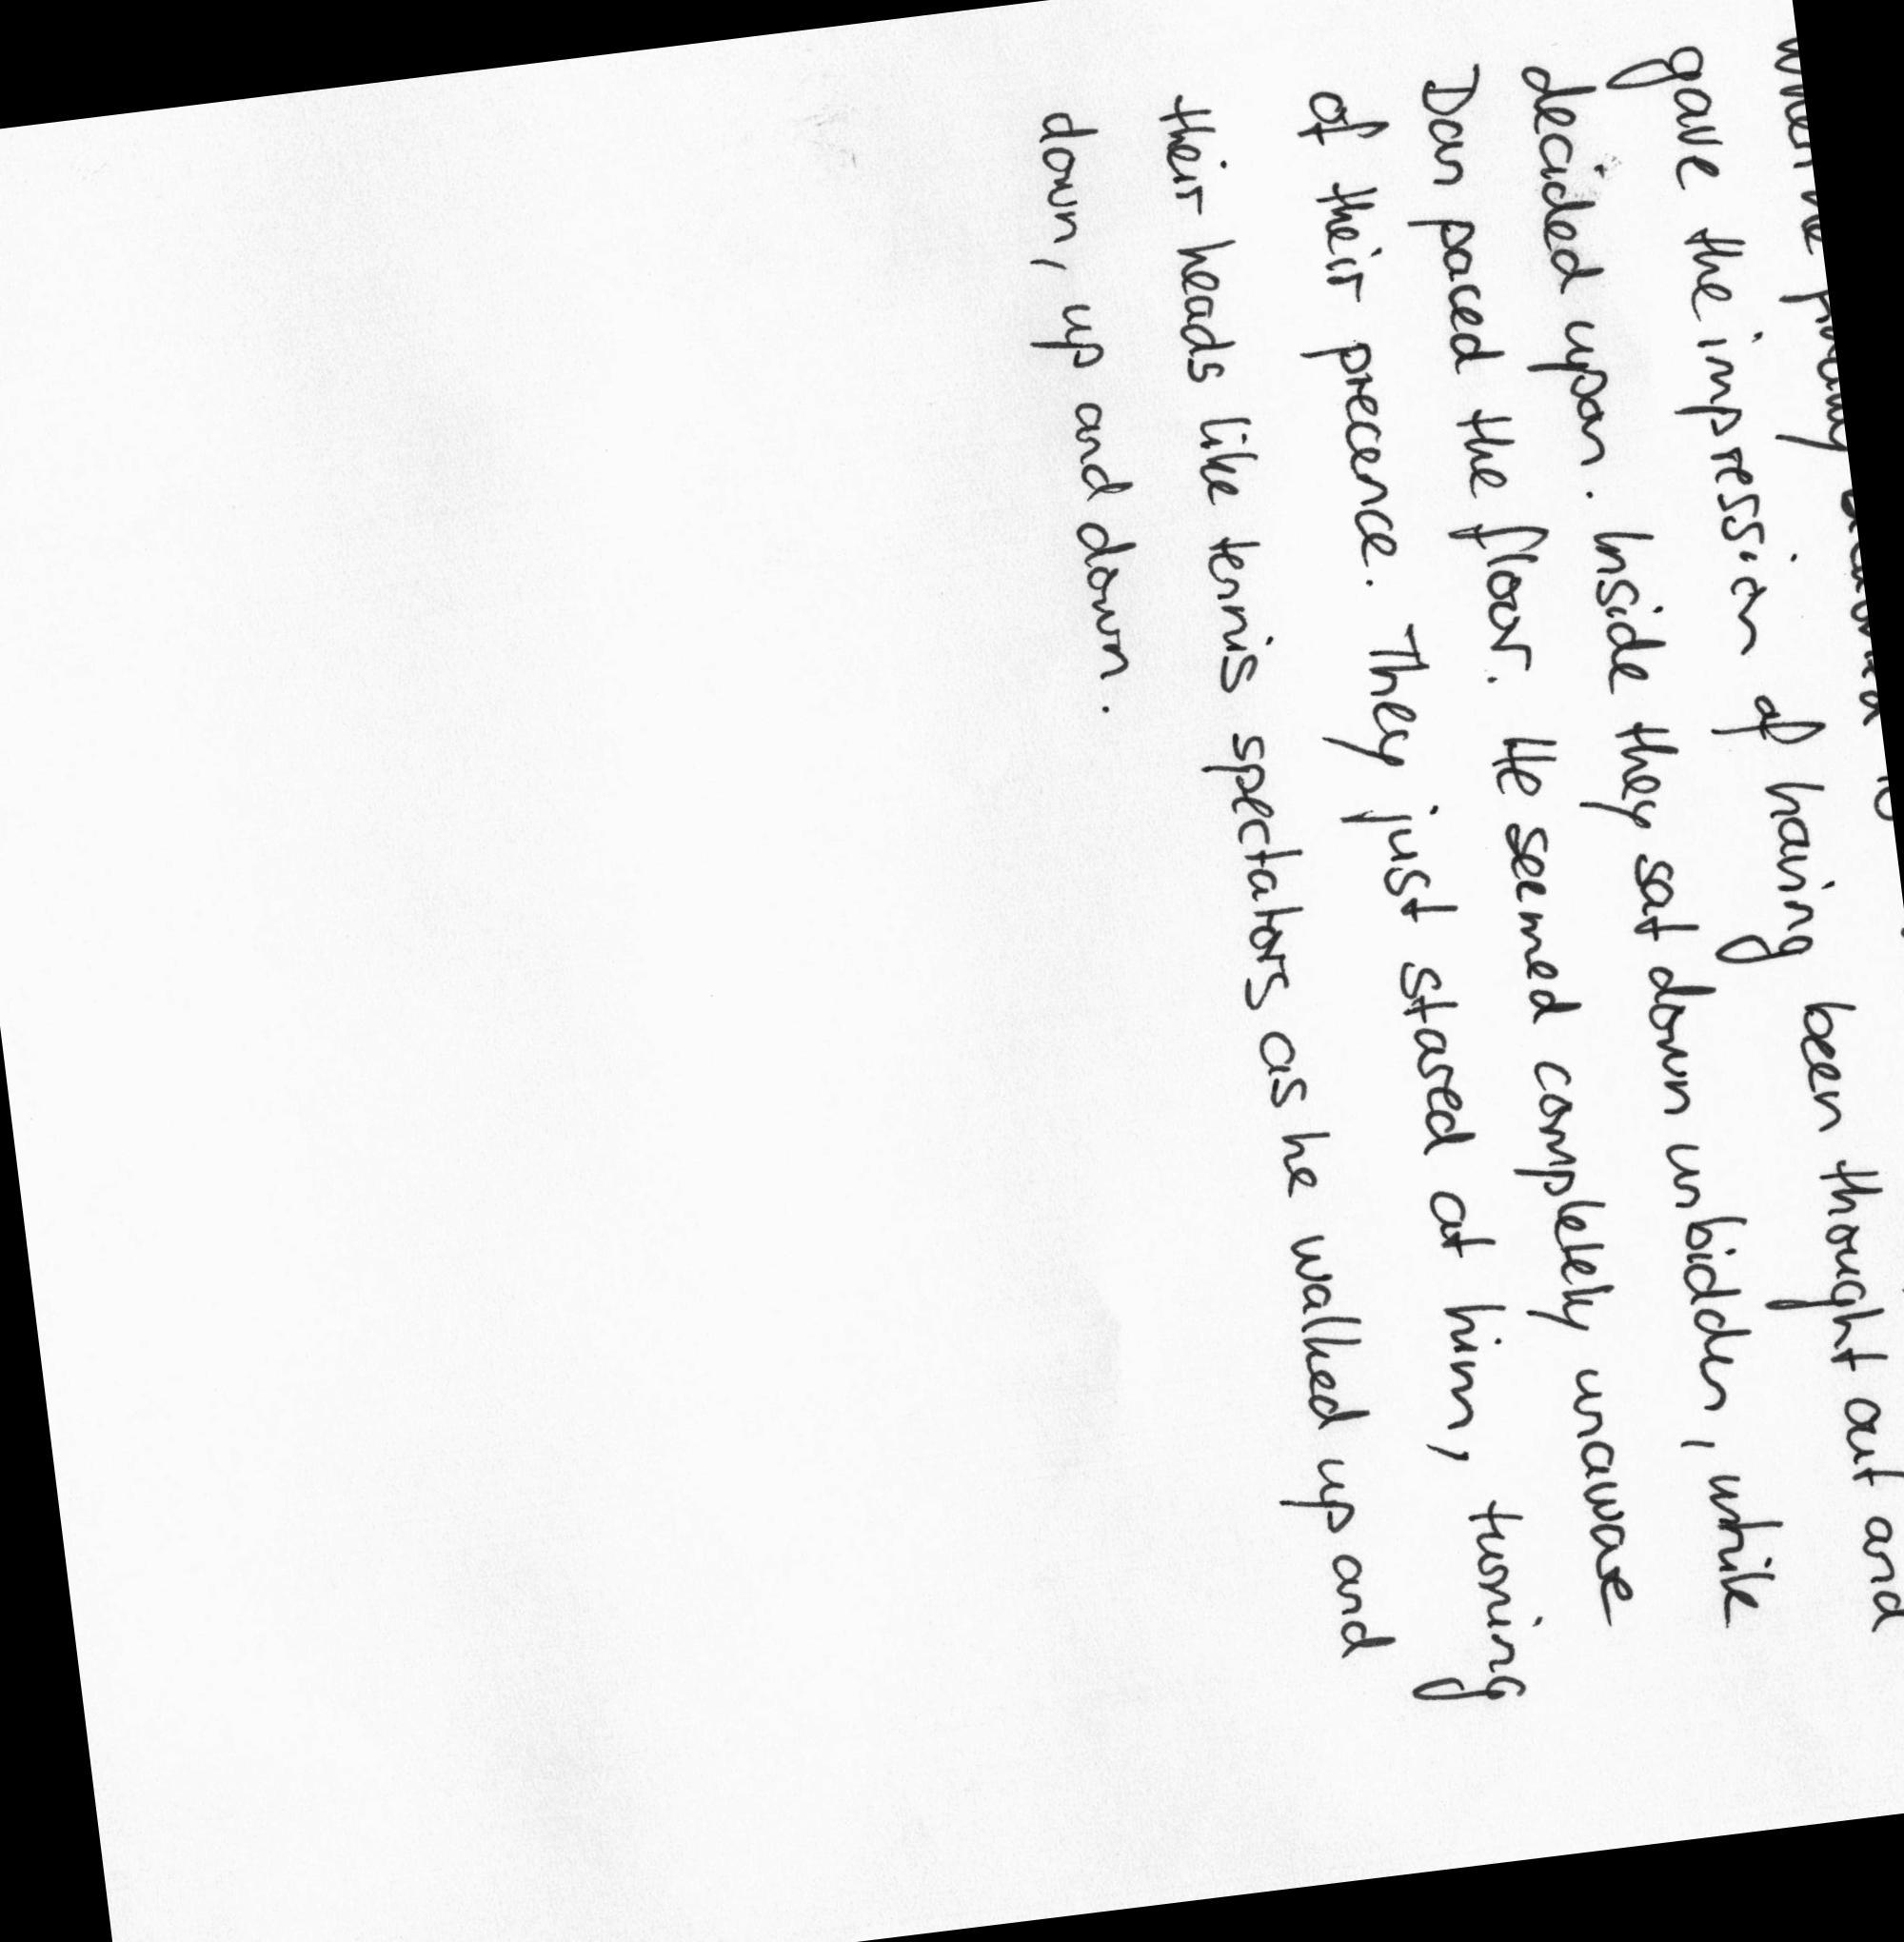 when he finally
gave the impression of having been thought out and
decided upon. Inside they sat down unbidden, while
Dan paced the floor. He seemed completely unaware
of their precence. They just stared at him, turning
their heads like tennis spectators as he walked up and
down, up and down.